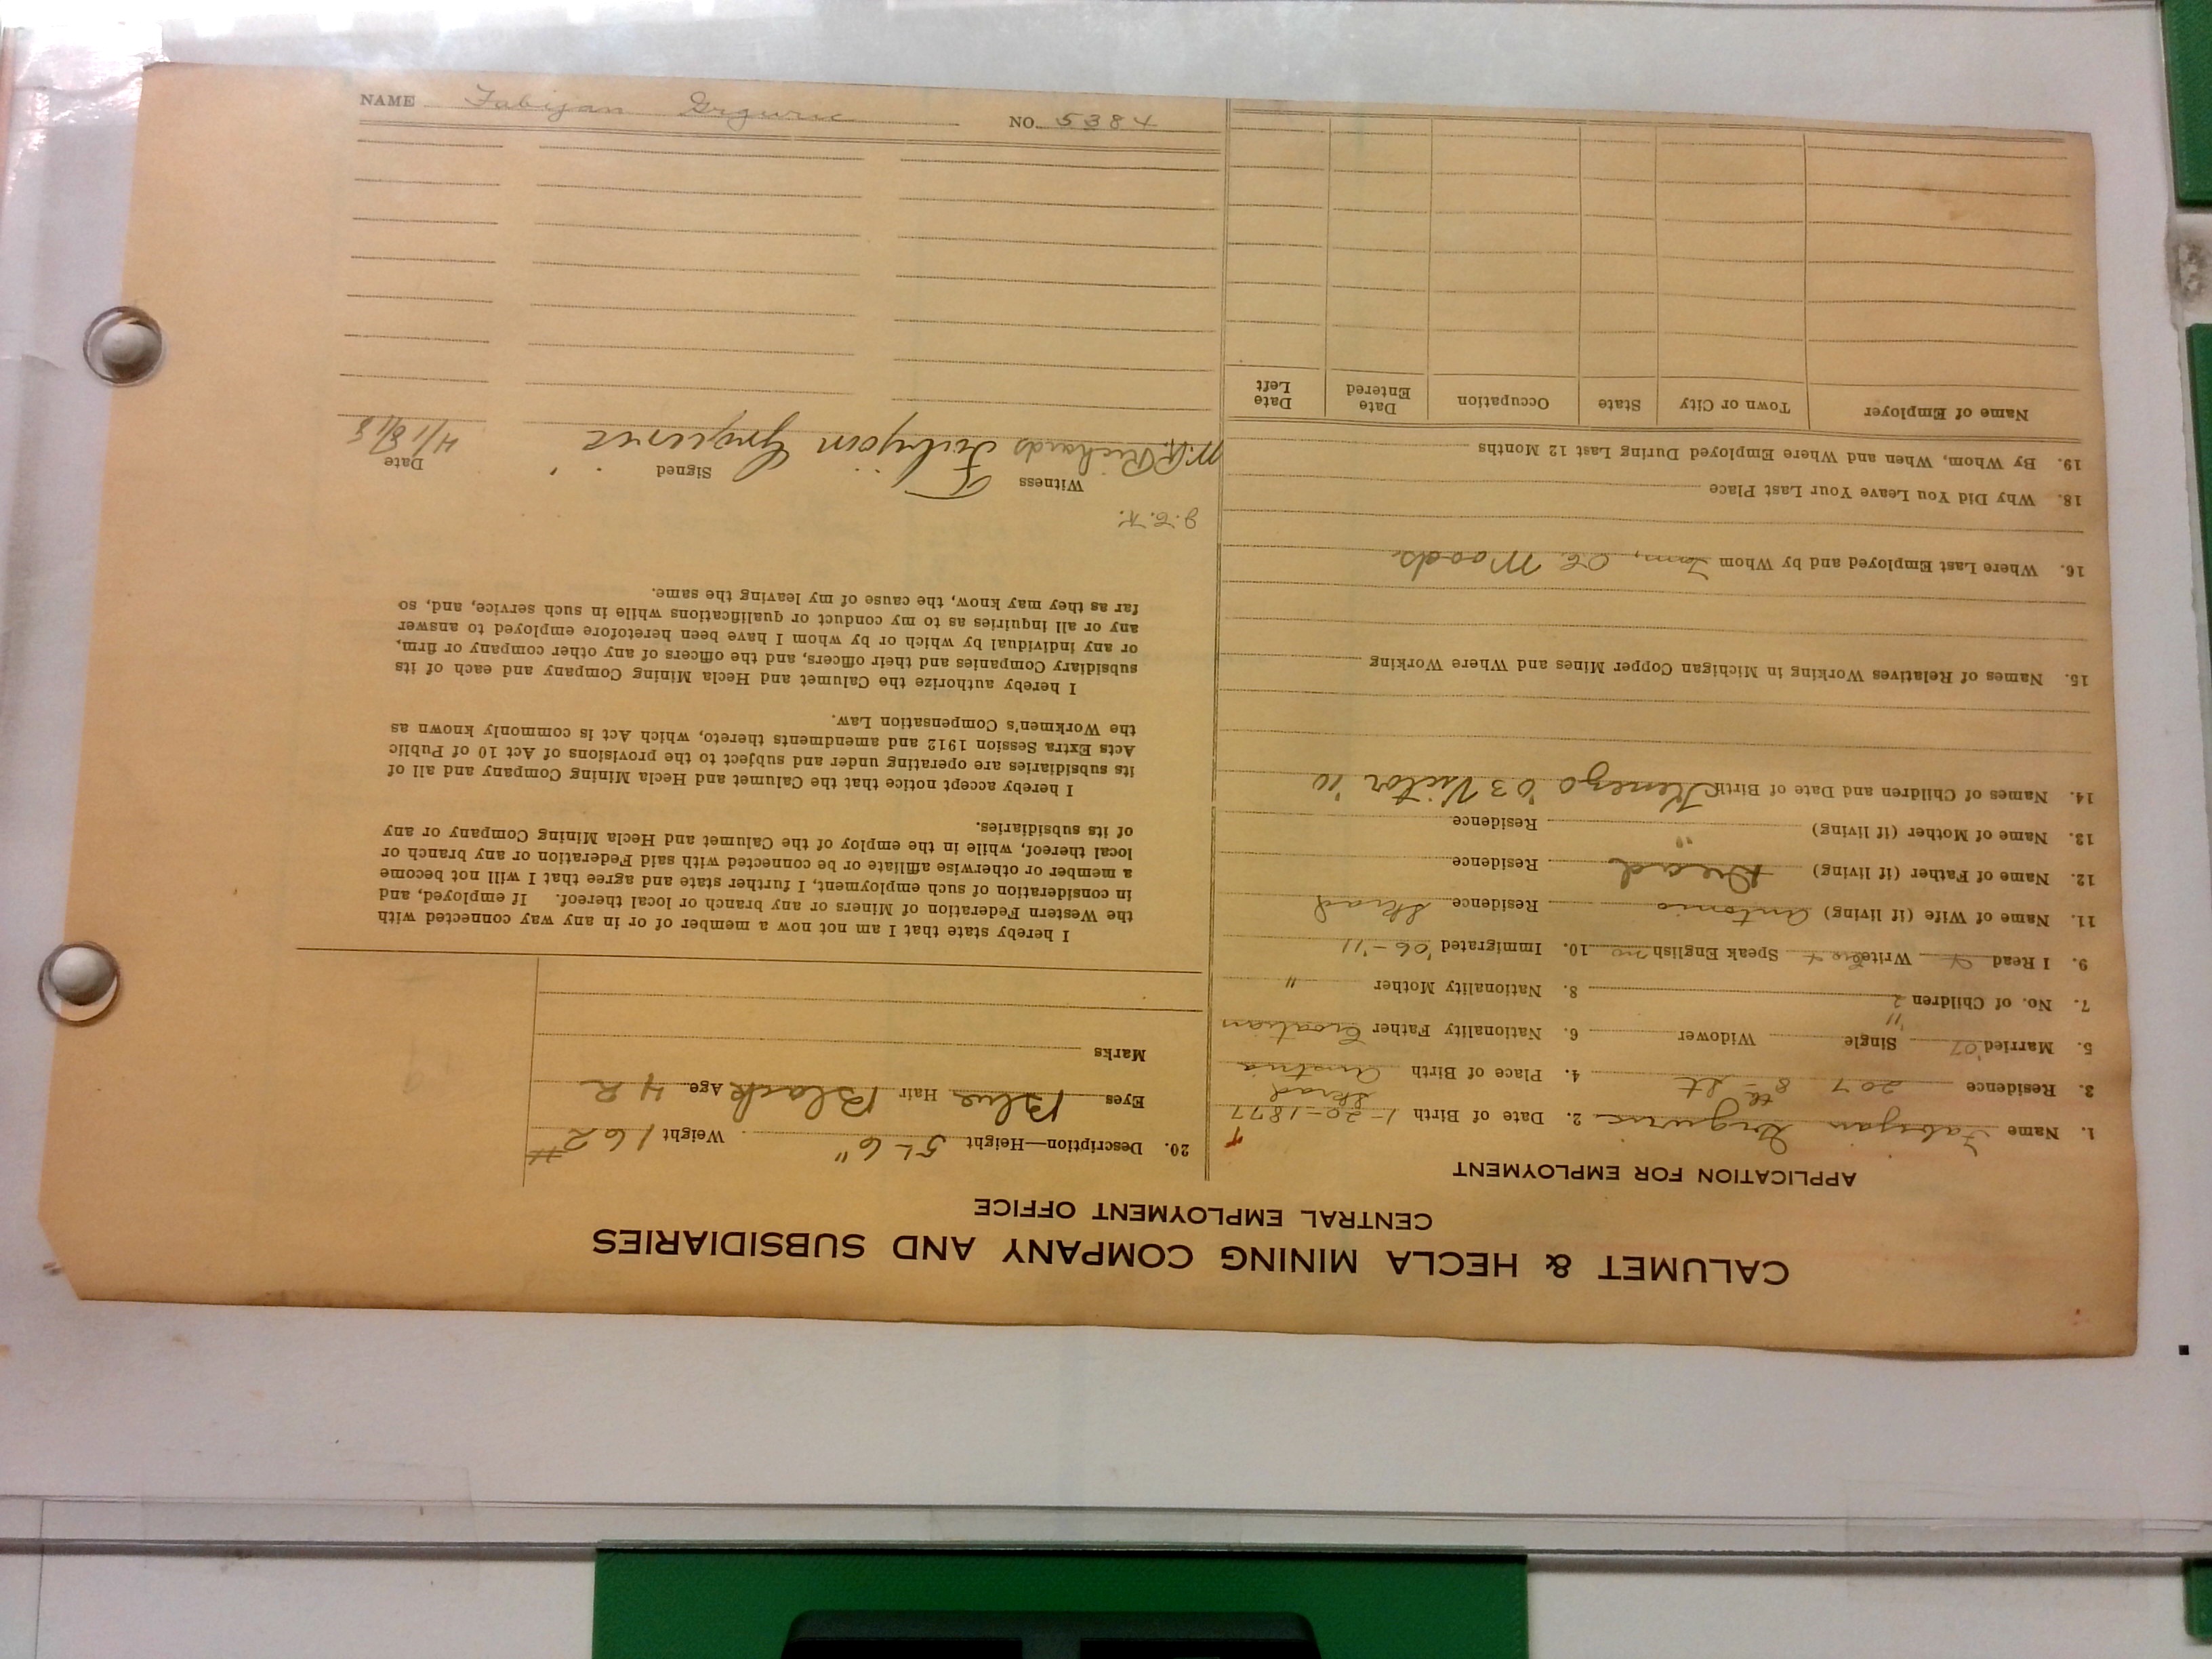 CALUMET & HECLA MINING COMPANY AND SUBSIDIARIES
CENTRAL EMPLOYMENT OFFICE
APPLICATION FOR EMPLOYMENT
1. Name Fabijan Grguric 2. Date of Birth 1-20-1877
3. Residence 207 8th St 4. Place of Birth Skrad Austria
5. Married '07 Single " Widower 6. Nationality Father Croatian
7. No. of Children 2 8. Nationality Mother "
9. I Read Write Speak English no 10. Immigrated '06-'11
11. Name of Wife (if living) Antonio Residence Skrad
12. Name of Father (if living) Dead Residence
13. Name of Mother (if living) " Residence
14. Names of Children and Date of Birth '03 Victor '10
15. Names of Relatives Working in Michigan Copper Mines and Where Working
16. Where Last Employed and by Whom Tam, Woods
18. Why Did You Leave Your Last Place
19. By Whom, When and Where Employed During Last 12 Months
Name of Employer Town or City State Occupation Date Entered Date Left
20. Description—Height 5-6" Weight 162#
Eyes Blue Hair Black Age 42
Marks
I hereby state that I am not now a member of or in any way connected with
the Western Federation of Miners or any branch or local thereof. If employed, and
in consideration of such employment, I further state and agree that I will not become
a member or otherwise affiliate or be connected with said Federation or any branch or
local thereof, while in the employ of the Calumet and Hecla Mining Company or any
of its subsidiaries.
I hereby accept notice that the Calumet and Hecla Mining Company and all of
its subsidiaries are operating under and subject to the provisions of Act 10 of Public
Acts Extra Session 1912 and amendments thereto, which Act is commonly known as
the Workmen's Compensation Law.
I hereby authorize the Calumet and Hecla Mining Company and each of its
subsidiary Companies and their officers, and the officers of any other company or firm,
or any individual by which or by whom I have been heretofore employed to answer
any or all inquiries as to my conduct or qualifications while in such service, and, so
far as they may know, the cause of my leaving the same.
Witness Signed Date
Richards Fabijan Grguric 4/18/18
NAME Fabijan Grguric NO. 5384